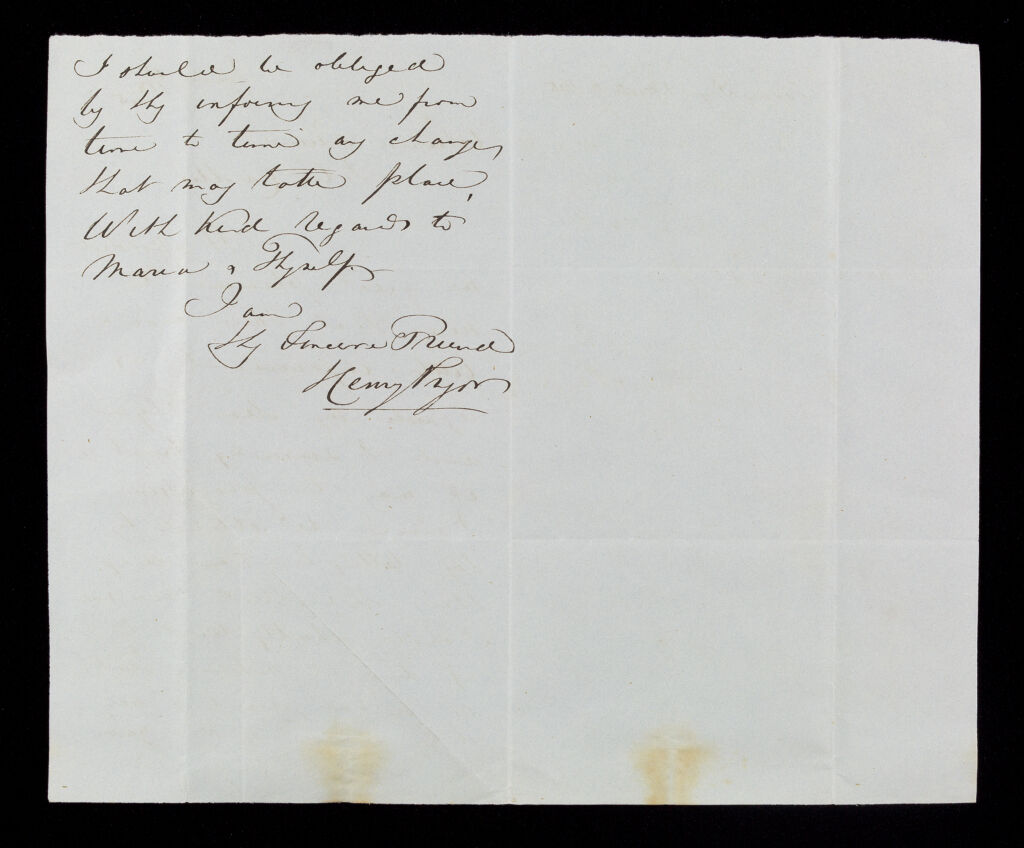 I should be obliged
by thy informing me from
time to time any changes
that may take place,
With kind regards to
Maria & Thyself.
I am
thy Sincere Friend
Henry Pryor